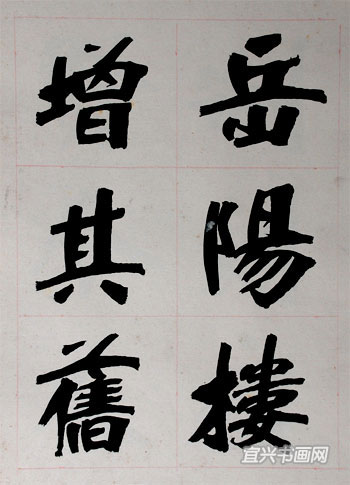 岳陽樓
增其舊
宜兴书画网